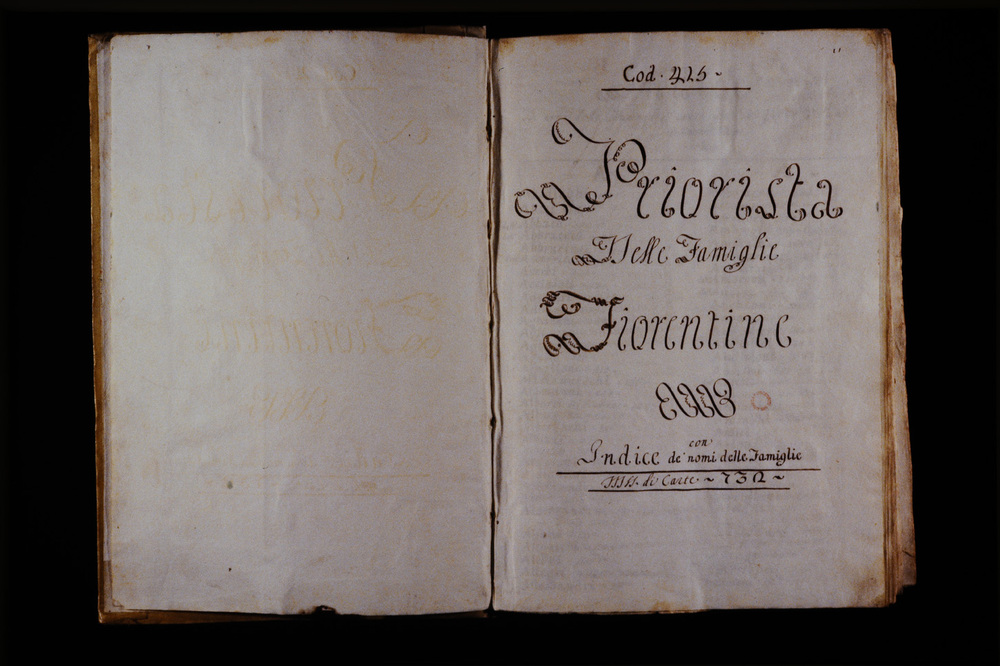 Cod. 425~
Priorista
Delle Famiglie
Fiorentine
con
Indice de' nomi delle Famiglie
di Carte ~ 732 ~